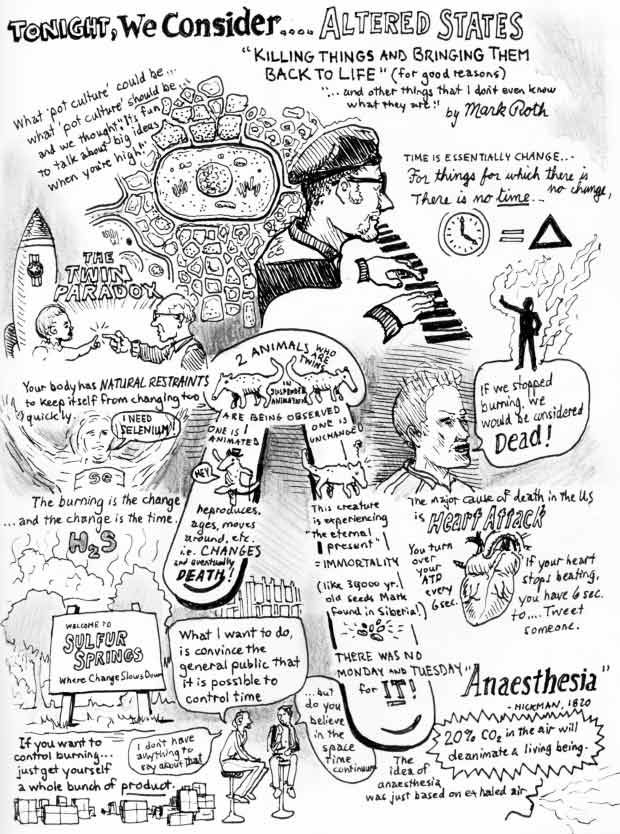 TONIGHT, We Consider.... ALTERED STATES
"KILLING THINGS AND BRINGING THEM
BACK TO LIFE" (for good reasons)
"...and other things that I don't even know
what they are!!
by Mark Roth
What 'pot culture' could be...
what 'pot culture' should be...
and we thought "It's fun
to talk about big ideas
when you're high".
TIME IS ESSENTIALLY CHANGE...
For things for which there is
no change,
There is no time...
=
THE
TWIN
PARADOX
2 ANIMALS WHO
ARE
TWINS
IN
SUSPENDED
ANIMATION
ARE BEING OBSERVED
ONE IS
ANIMATED
ONE IS
UNCHANGED
HEY!
Reproduces,
ages, moves
around, etc.
i.e. CHANGES
and eventually
DEATH!
This creature
is experiencing
"the eternal
present"
= IMMORTALITY
(like 39000 yr.
old seeds Mark
found in Siberia!)
THERE WAS NO
MONDAY AND TUESDAY
for IT!
Your body has NATURAL RESTRAINTS
to keep itself from changing too
quickly.
I NEED
SELENIUM!
Se
The burning is the change
...and the change is the time.
H2S
WELCOME TO
SULFUR
SPRINGS
Where Change Slows Down
If you want to
control burning...
just get yourself
a whole bunch of product.
What I want to do,
is convince the
general public that
it is possible to
control time
I don't have
anything to
say about that
...but
do you
believe
in the
space
time
continuum
If we stopped
burning, we
would be considered
DEAD!
The major cause of death in the US
is HEART ATTACK
You turn
over
your
ATP
every
6 sec.
If your heart
stops beating,
you have 6 sec.
to.... Tweet
someone.
"Anaesthesia"
- HICKMAN, 1820
20% CO2 in the air will
deanimate a living being.
The
idea of
anaesthesia
was just based on exhaled air